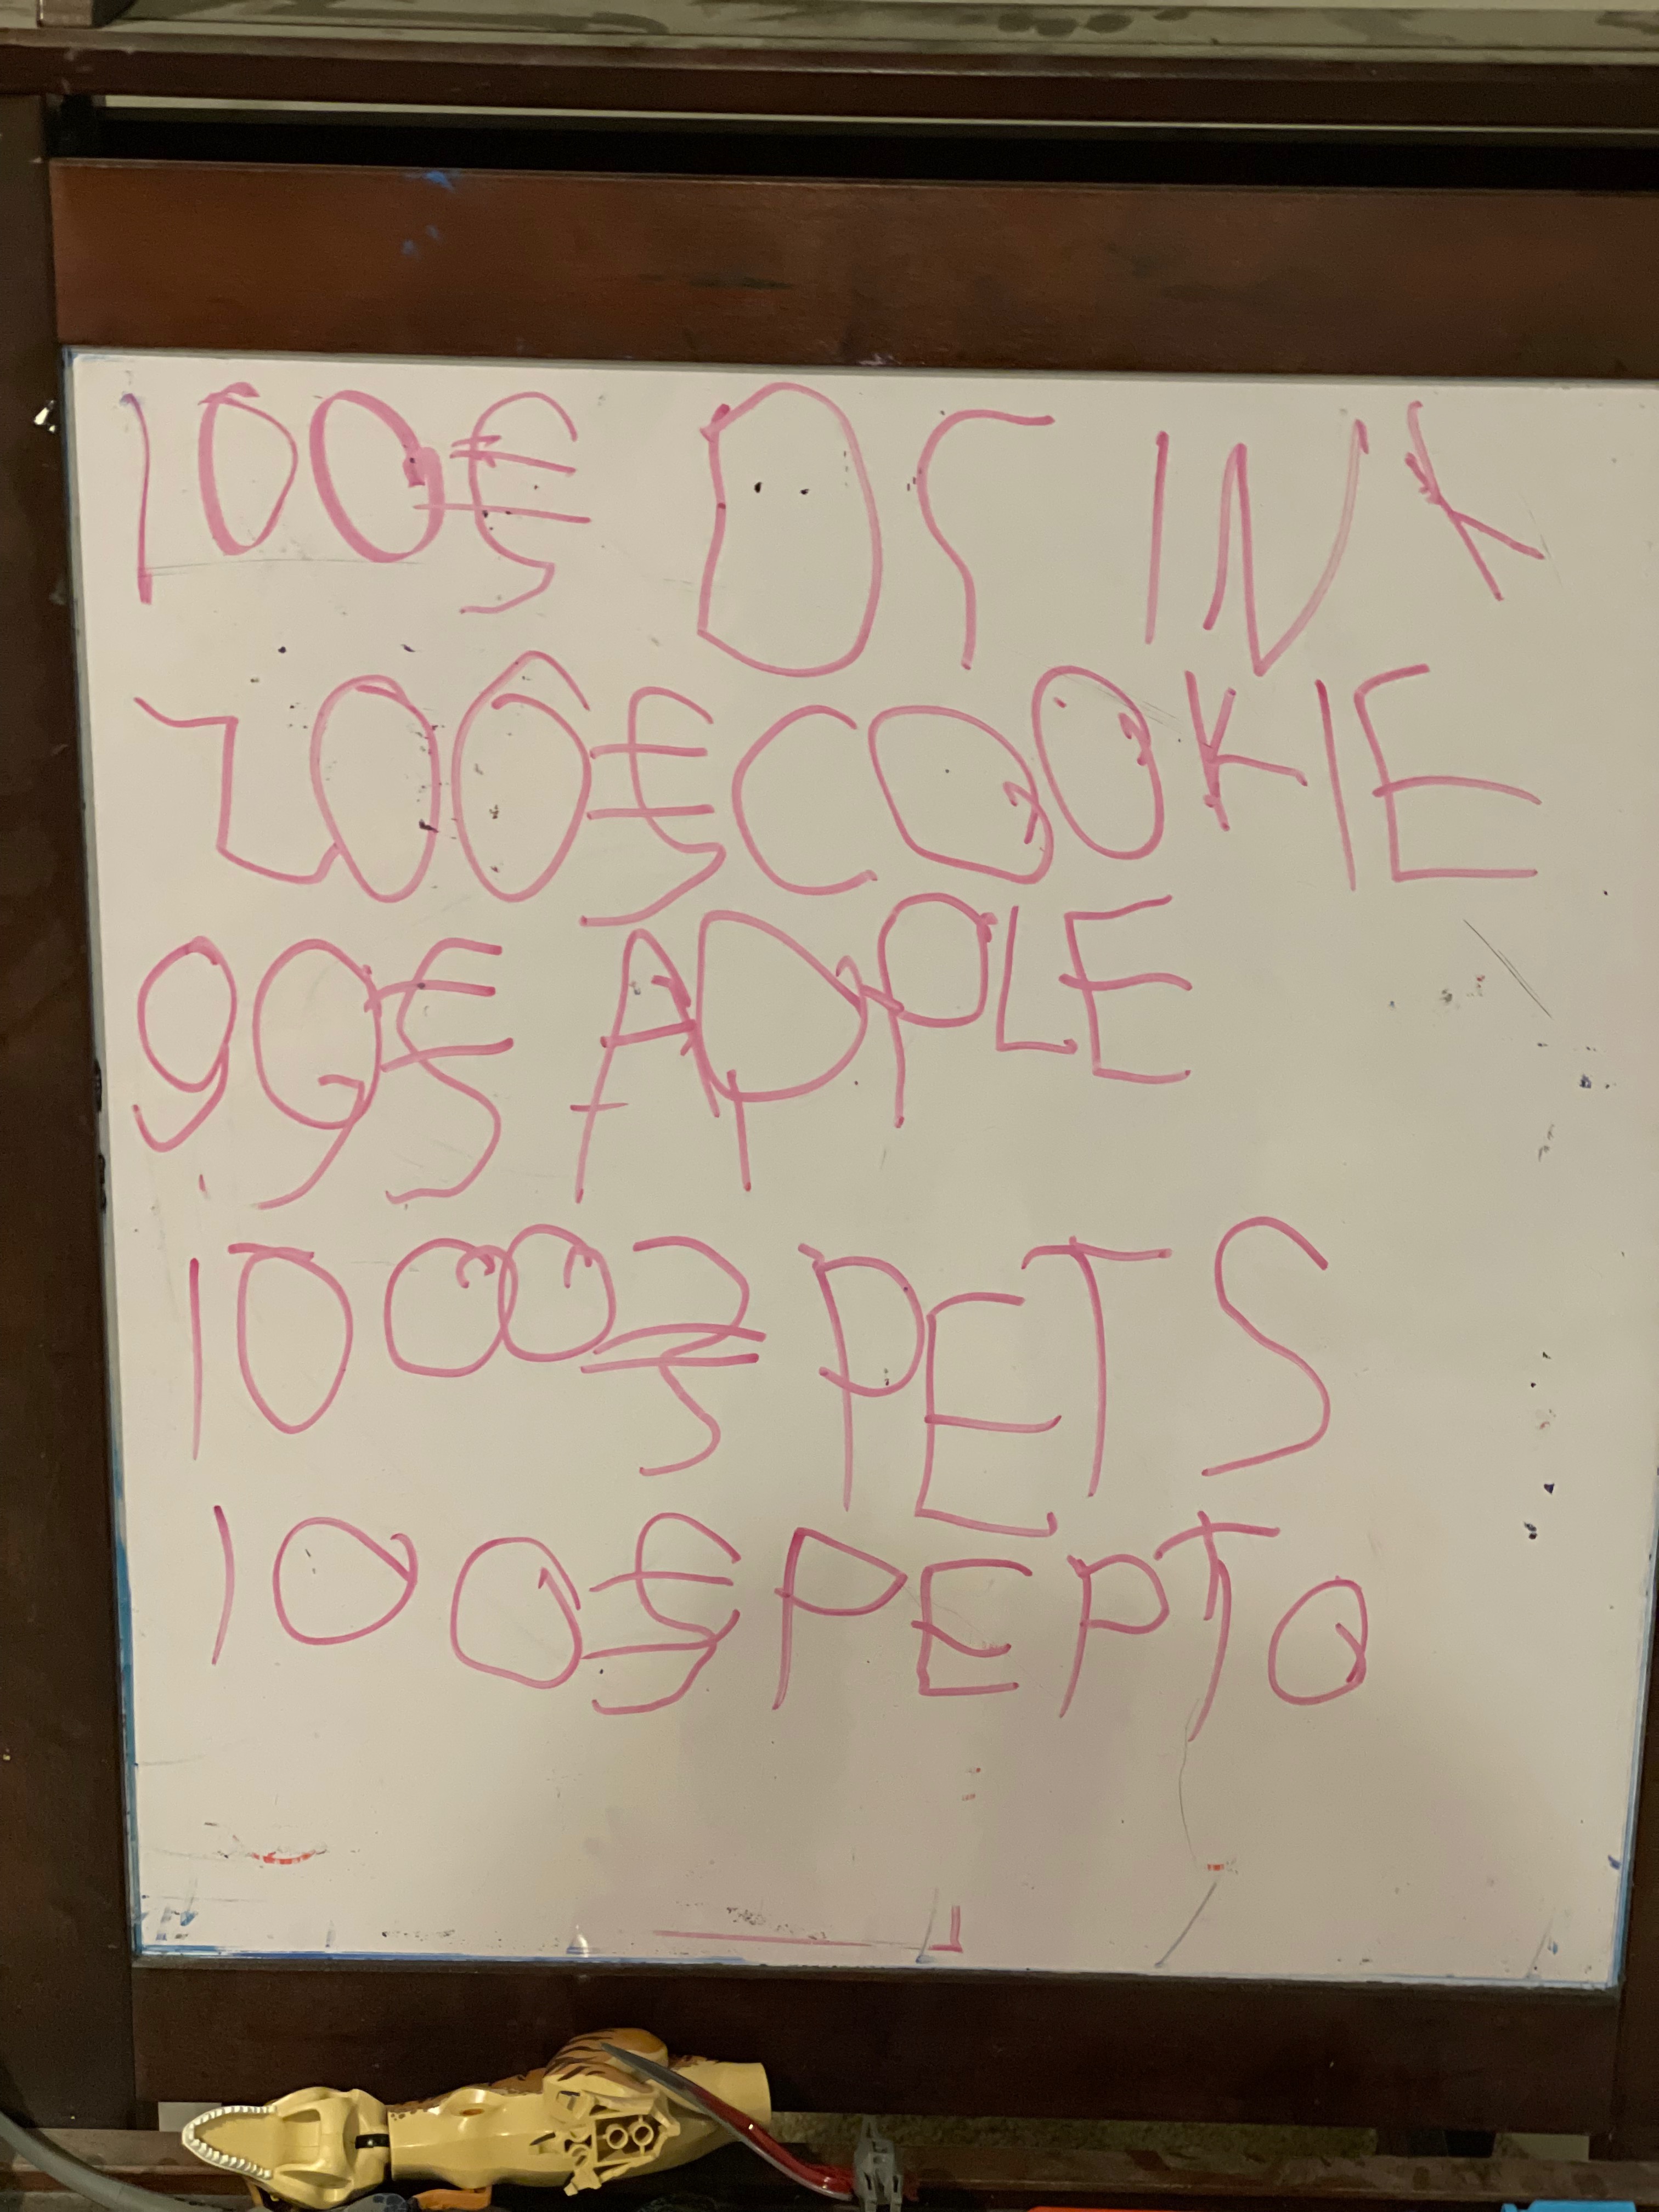 100€ DrINK
200€ COOKIE
99€ APPLE
1000€ PETS
100€ PEPTO